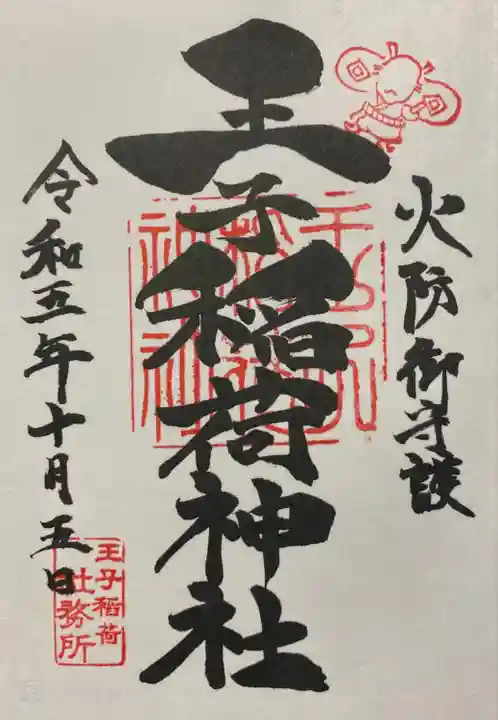 火防御守護
王子稲荷神社
令和五年十月五日
王子稲荷
社務所